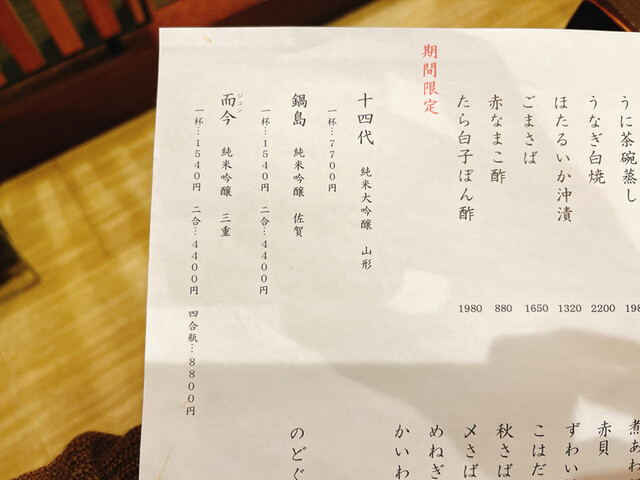 うに茶碗蒸し
うなぎ白焼 2200
ほたるいか沖漬 1320
ごまさば 1650
赤なまこ酢 880
たら白子ぽん酢 1980
期間限定
十四代 純米大吟醸 山形
一杯…7700円
鍋島 純米吟醸 佐賀
一杯…1540円 二合…4400円
而今 純米吟醸 三重
ジコン
一杯…1540円 二合…4400円 四合瓶…8800円
赤貝
ずわい
こはだ
秋さば
〆さば
めねぎ
かいわ
のどぐ